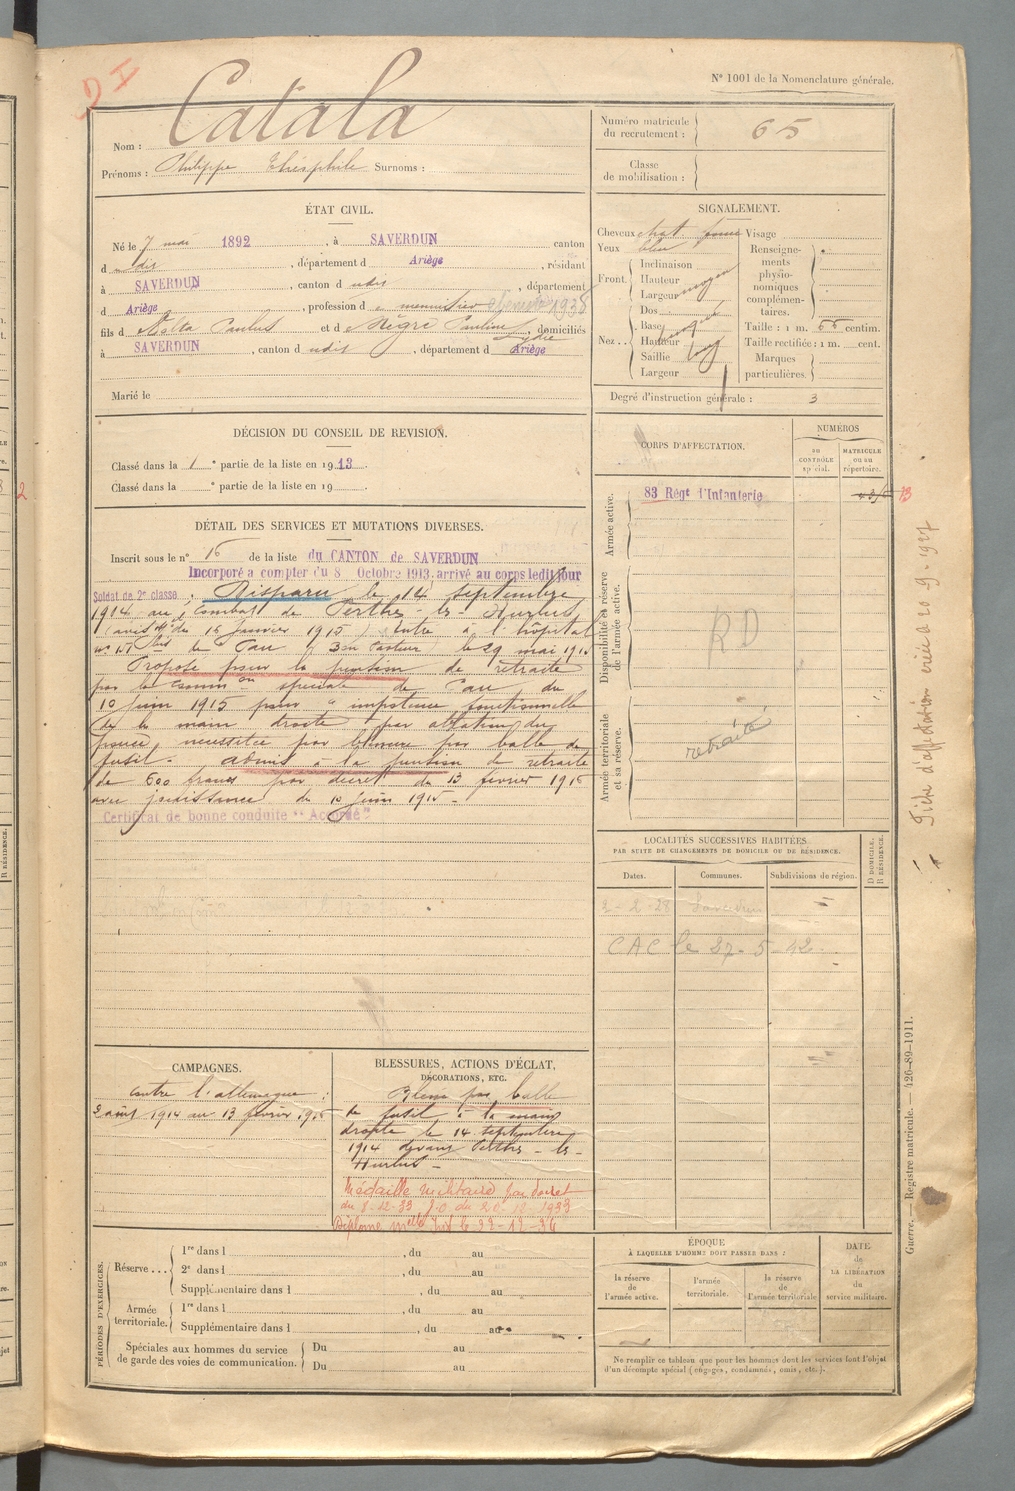 D I
N° 1001 de la Nomenclature générale.
Catala
Nom :
Prénoms : Philippe Théophile Surnoms :
Numéro matricule du recrutement : 65
Classe de mobilisation :
ÉTAT CIVIL.
Né le 7 mai 1892, à SAVERDUN canton
d udit, département d Ariège, résidant
à SAVERDUN, canton d udit, département
d Ariège, profession d menuisier
fils d Paulus et d Négri Pauline Lydie, domiciliés
à SAVERDUN, canton d udit, département d Ariège
Marié le
SIGNALEMENT.
Cheveux chat foncé Visage
Yeux bleu
Front. Inclinaison
Hauteur
Largeur moyen
Nez.. Dos
Base
Hauteur
Saillie
Largeur
Renseignements physionomiques complémentaires.
Taille : 1 m. 66 centim.
Taille rectifiée : 1 m. cent.
Marques particulières.
Degré d'instruction générale : 3
DÉCISION DU CONSEIL DE REVISION.
Classé dans la 1 e partie de la liste en 1913.
Classé dans la e partie de la liste en 19
CORPS D'AFFECTATION.
NUMÉROS
au CONTRÔLE spécial.
MATRICULE ou au répertoire.
Armée active.
83 Régt d'Infanterie
Disponibilité et réserve de l'armée active.
RD
Armée territoriale et sa réserve.
retraité
DÉTAIL DES SERVICES ET MUTATIONS DIVERSES.
Inscrit sous le n° 16 de la liste du CANTON de SAVERDUN
Incorporé à compter du 8 Octobre 1913, arrivé au corps ledit jour
Soldat de 2e classe. Disparu le 14 septembre
1914 au combat de Perthes-les-Hurlus
(avis du 16 janvier 1915) Entré à l'hôpital
n° 15 bis de Pau le 29 mai 1915
Proposé pour la pension de retraite
par la Common spéciale de Pau du
10 juin 1915 pour "impotence fonctionnelle
de la main droite par ablation du
pouce, nécessitée par blessure par balle de
fusil. Admis à la pension de retraite
de 600 francs par décret du 13 février 1916
avec jouissance du 10 juin 1915 -
Certificat de bonne conduite "Accordé"
Fiche d'affectation créée à 20.9.1927
LOCALITÉS SUCCESSIVES HABITÉES
PAR SUITE DE CHANGEMENTS DE DOMICILE OU DE RÉSIDENCE.
Dates. Communes. Subdivisions de région.
D DOMICILE. R RÉSIDENCE.
2-2-28 Saverdun
CAC le 27-5-42
CAMPAGNES.
Contre l'allemagne :
2 août 1914 au 13 février 1916
BLESSURES, ACTIONS D'ÉCLAT, DÉCORATIONS, ETC.
Blessé par balle
de fusil à la main
droite le 14 septembre
1914 devant Perthes-les-
Hurlus -
Médaille militaire par décret
du 8-12-33 J.O. du 20-12-1933
PÉRIODES D'EXERCICES.
Réserve... 1re dans l , du au
2e dans l , du au
Supplémentaire dans l , du au
Armée territoriale. 1re dans l , du au
Supplémentaire dans l , du au
Spéciales aux hommes du service de garde des voies de communication. Du au
Du au
ÉPOQUE
À LAQUELLE L'HOMME DOIT PASSER DANS :
la réserve de l'armée active.
l'armée territoriale.
la réserve de l'armée territoriale
DATE de LA LIBÉRATION du service militaire.
Ne remplir ce tableau que pour les hommes dont les services font l'objet
d'un décompte spécial (engagés, condamnés, omis, etc.).
Guerre. — Registre matricule. — 426-89-1911.